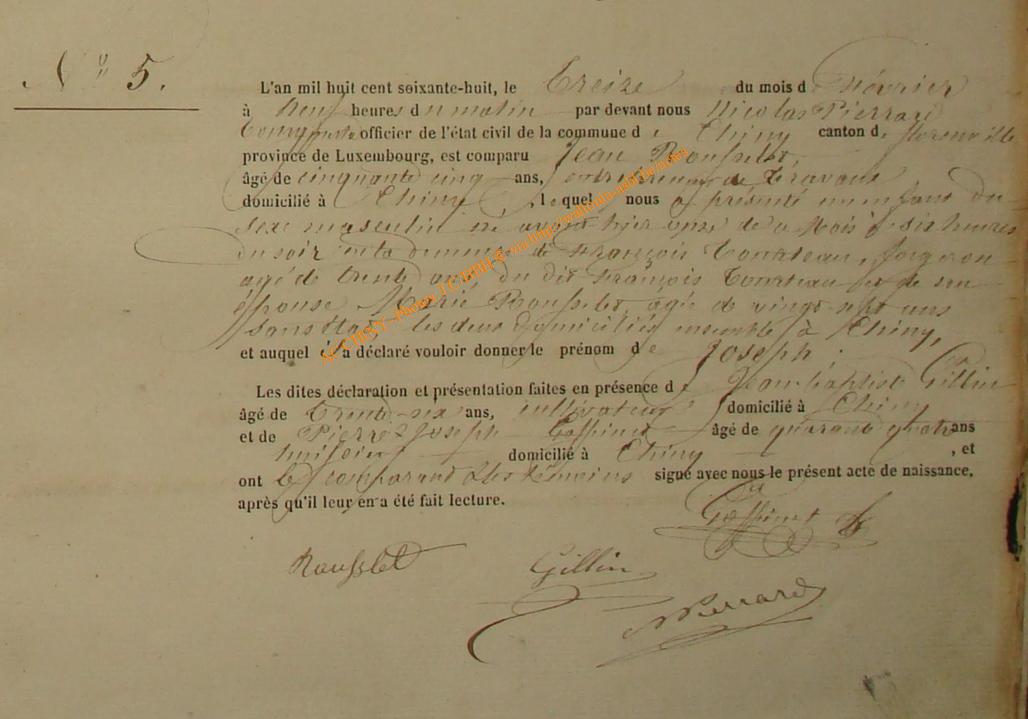 N° 5.
L'an mil huit cent soixante-huit, le Treize du mois d Février
à Neuf heures du matin par devant nous Nicolas Pierrard
Bourgmestre officier de l'état civil de la commune de Chiny canton de florenville
province de Luxembourg, est comparu Jean Rousselot,
âgé de cinquante cinq ans, entrepreneur de Travaux
domicilié à Chiny, lequel nous a présenté un enfant du
sexe masculin né avant hier onze de ce Mois à six heures
du soir en la demeure de François forgeron
agé de trente ans, du dit François et de son
épouse Marie Rousselot, agée de vingt-sept ans
sans état, les deux domiciliés ensemble à Chiny,
et auquel il a déclaré vouloir donner le prénom de Joseph ;
Les dites déclaration et présentation faites en présence de Jean-baptiste Gillin
âgé de Trente-six ans, cultivateur domicilié à Chiny
et de Pierre-Joseph Gaspinet âgé de quarante quatre ans
domicilié à Chiny, et
ont le comparant & les témoins signé avec nous le présent acte de naissance,
après qu'il leur en a été fait lecture.
Gaspinet
Rousslet Gillin
N Pierrard